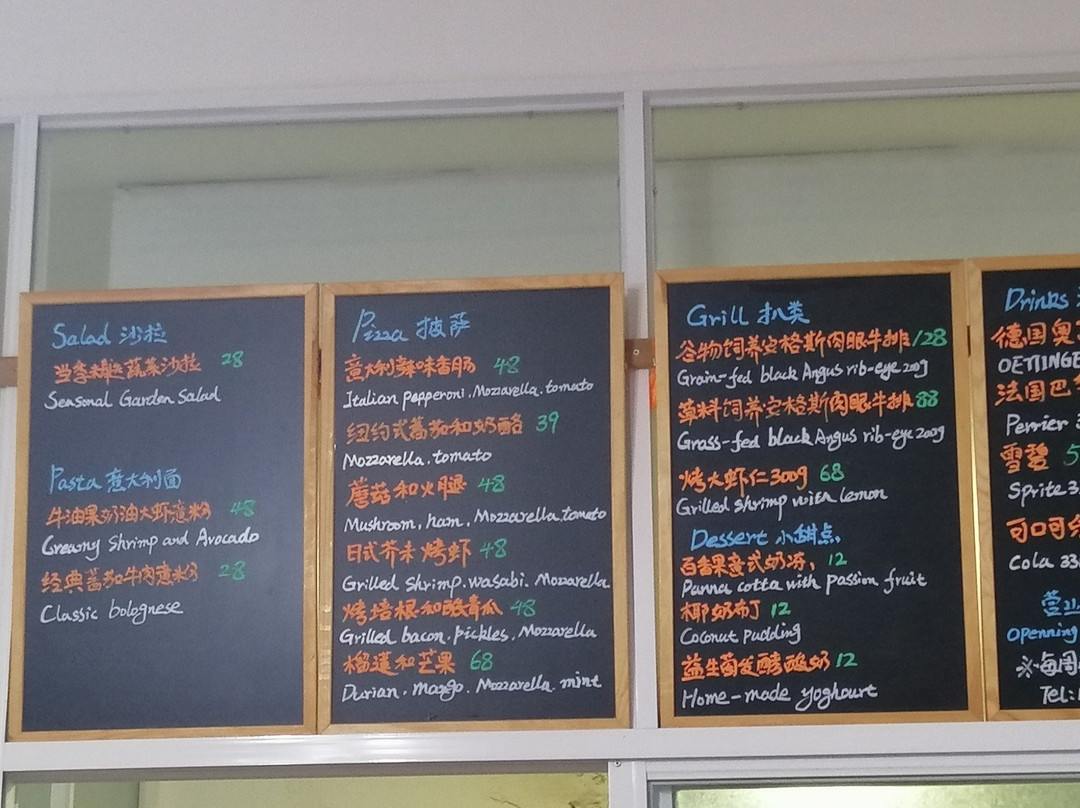 Salad 沙拉
当季精选蔬菜沙拉 28
Sensonal Garden Salad
Pasta 意大利面
牛油果奶油大虾意粉 48
Creamy Shrimp and Avocado
经典蕃茄牛肉意粉 28
Classic bolognese
Pizza 披萨
意大利辣味香肠 48
Italian pepperoni, Mozzarella. tomato
纽约式蕃茄和奶酪 39
Mozzarella. tomato
蘑菇和火腿 48
Mushroom, ham, Mozzarella, tomato
日式芥末烤虾 48
Grilled shrimp. wasabi. Mozzarella
烤培根和酸青瓜 48
Grilled bacon. Pickles. Mozzarella
榴莲和芒果 68
Durian. mango. Mozzarella. mint
Grill 扒类
谷物饲养安格斯肉眼牛排 128
Grain-fed black Angus rib-eye 200g
草料饲养安格斯肉眼牛排 88
Grass-fed black Angus rib-eye 200g
烤大虾仁300g 68
Grilled shrimp with lemon
Dessert 小甜点
百香果意式奶冻, 12
Panna cotta with passion fruit
椰奶布丁 12
Coconut Pudding
益生菌发酵酸奶 12
Home-made yoghourt
Drinks
德国奥
OETTINGE
法国巴
Perrier
雪碧 5
Sprite 3
可口可
Cola 33
营业
Openning
※每周
Tel: